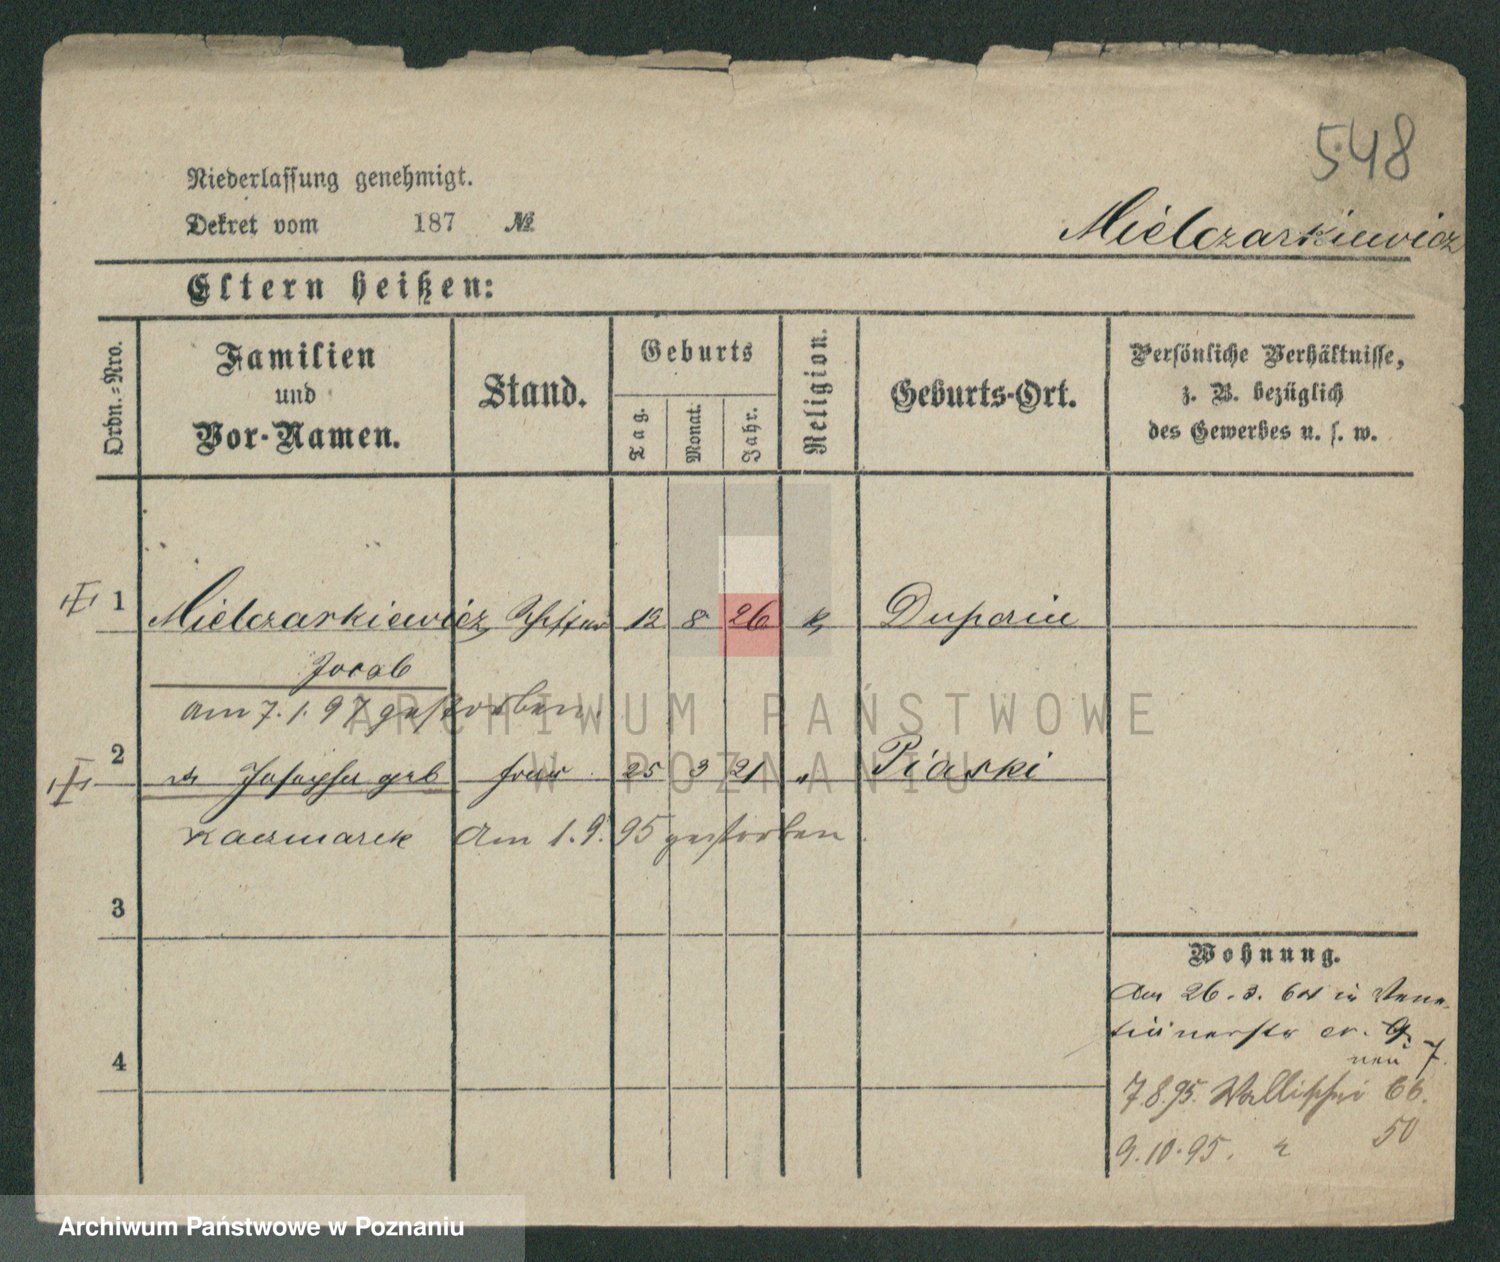 548
Niederlassung genehmigt.
Dekret vom 187 №
Mielczarkiewicz
Eltern heißen:
Ordn.=Nro.
Familien
und
Vor-Namen.
Stand.
Geburts
Tag.
Monat.
Jahr.
Religion.
Geburts-Ort.
Persönliche Verhältnisse,
z. B. bezüglich
des Gewerbes u. s. w.
1 Mielczarkiewicz Schiffer 12 8 26 k
Jacob
am 7.1.97 gestorben.
2 Josepha geb frau 25 3 21 " Piaski
Kaczmarek Am 1.9.95 gestorben
3
4
Wohnung.
26.3. in Vene-
tianerstr 9.
neu 7.
7.8.95. Wallischei 66.
9.10.95. " 50
ARCHIWUM PAŃSTWOWE
W POZNANIU
Archiwum Państwowe w Poznaniu